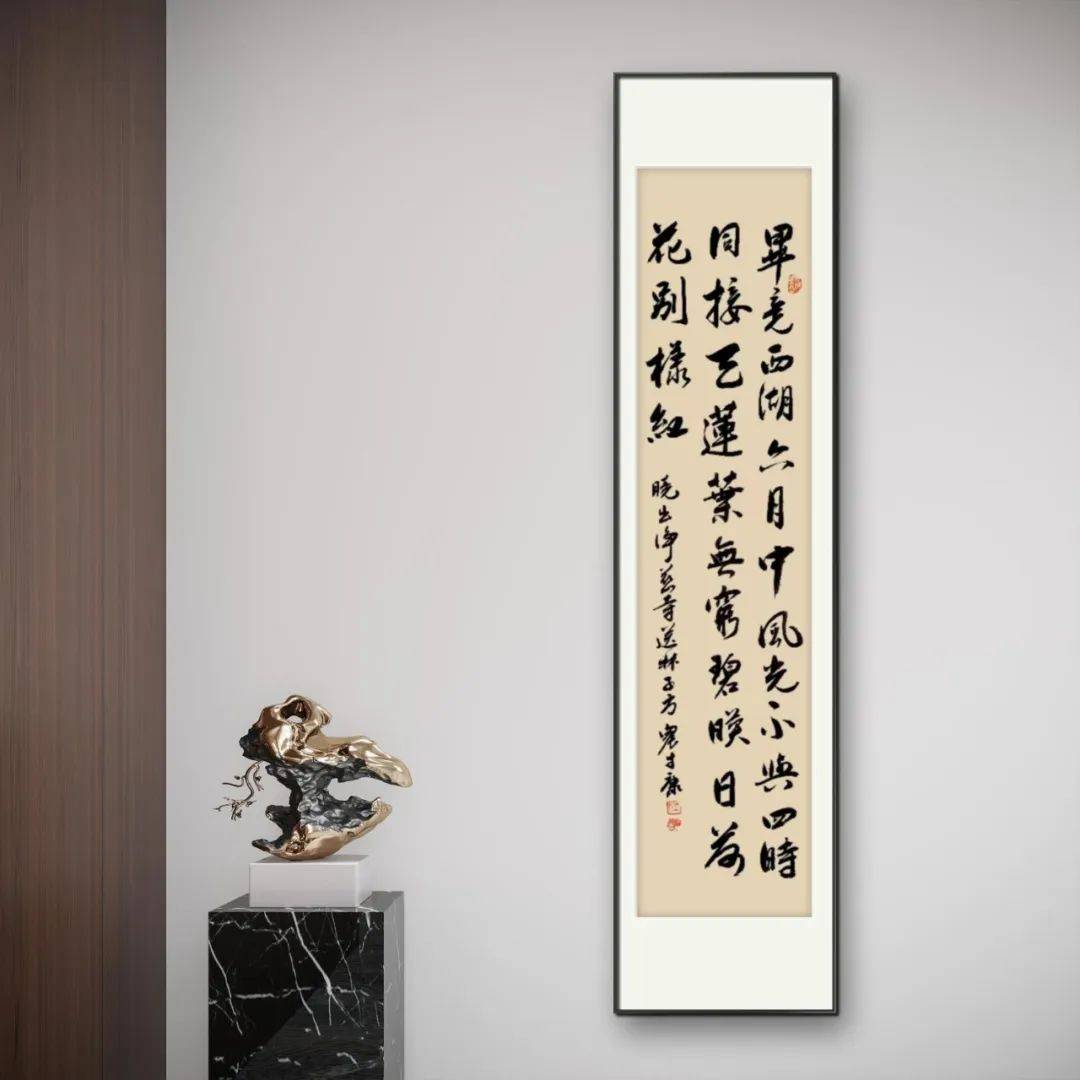 畢竟西湖六月中風光不與四時
同接天蓮葉無窮碧映日荷
花別樣紅
曉出淨慈寺送林子方